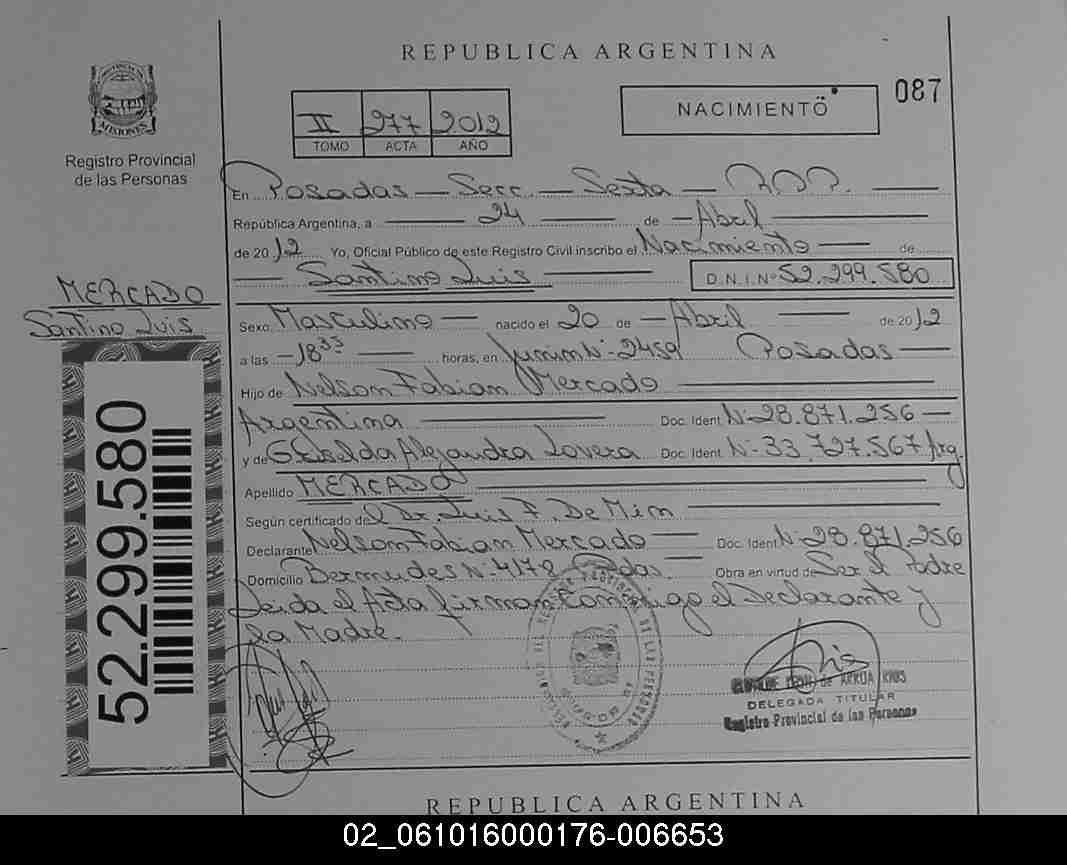 REPUBLICA ARGENTINA
PROVINCIA DE
MISIONES
Registro Provincial
de las Personas
II 277 2012
TOMO ACTA AÑO
NACIMIENTO
087
En Posadas — Secc. — Sexta —
República Argentina, a 24 de Abril
de 2012 Yo, Oficial Público de este Registro Civil inscribo el Nacimiento de
Santino Luis D.N.I. Nº 52.299.580
MERCADO
Santino Luis
52.299.580
Sexo Masculino — nacido el 20 de — Abril de 2012
a las — 18 33 — horas, en Junin Nº 2459 Posadas —
Hijo de Nelson Fabian Mercado
Argentina Doc. Ident. Nº 28.871.256 —
y de Griselda Alejandra Lovera Doc. Ident. Nº 33.727.567 Arg.
Apellido MERCADO
Según certificado del Dr. Luis F. De
Declarante Nelson Fabian Mercado — Doc. Ident. Nº 28.871.256
Domicilio Bermudes Nº Pdas. Obra en virtud de Ser el Padre
Leida el Acta firman conmigo el Declarante y
la Madre.
REGISTRO PROVINCIAL DE LAS PERSONAS
de ARRUA RIOS
DELEGADA TITULAR
Registro Provincial de las Personas
REPUBLICA ARGENTINA
02_061016000176-006653